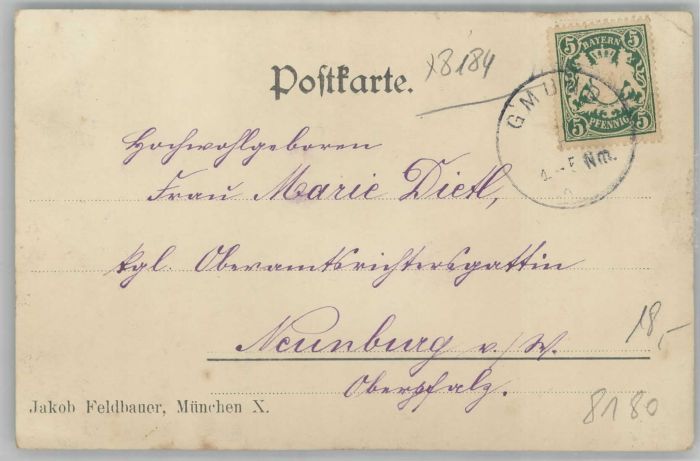 5 BAYERN 5
5 PFENNIG 5
x8184
Postkarte.
GMUND
4-5 Nm.
Hochwohlgeboren
Frau Marie Dietl,
kgl. Oberamtsrichtersgattin
Neunburg v/W.
18,-
Oberpfalz.
Jakob Feldbauer, München X.
8180